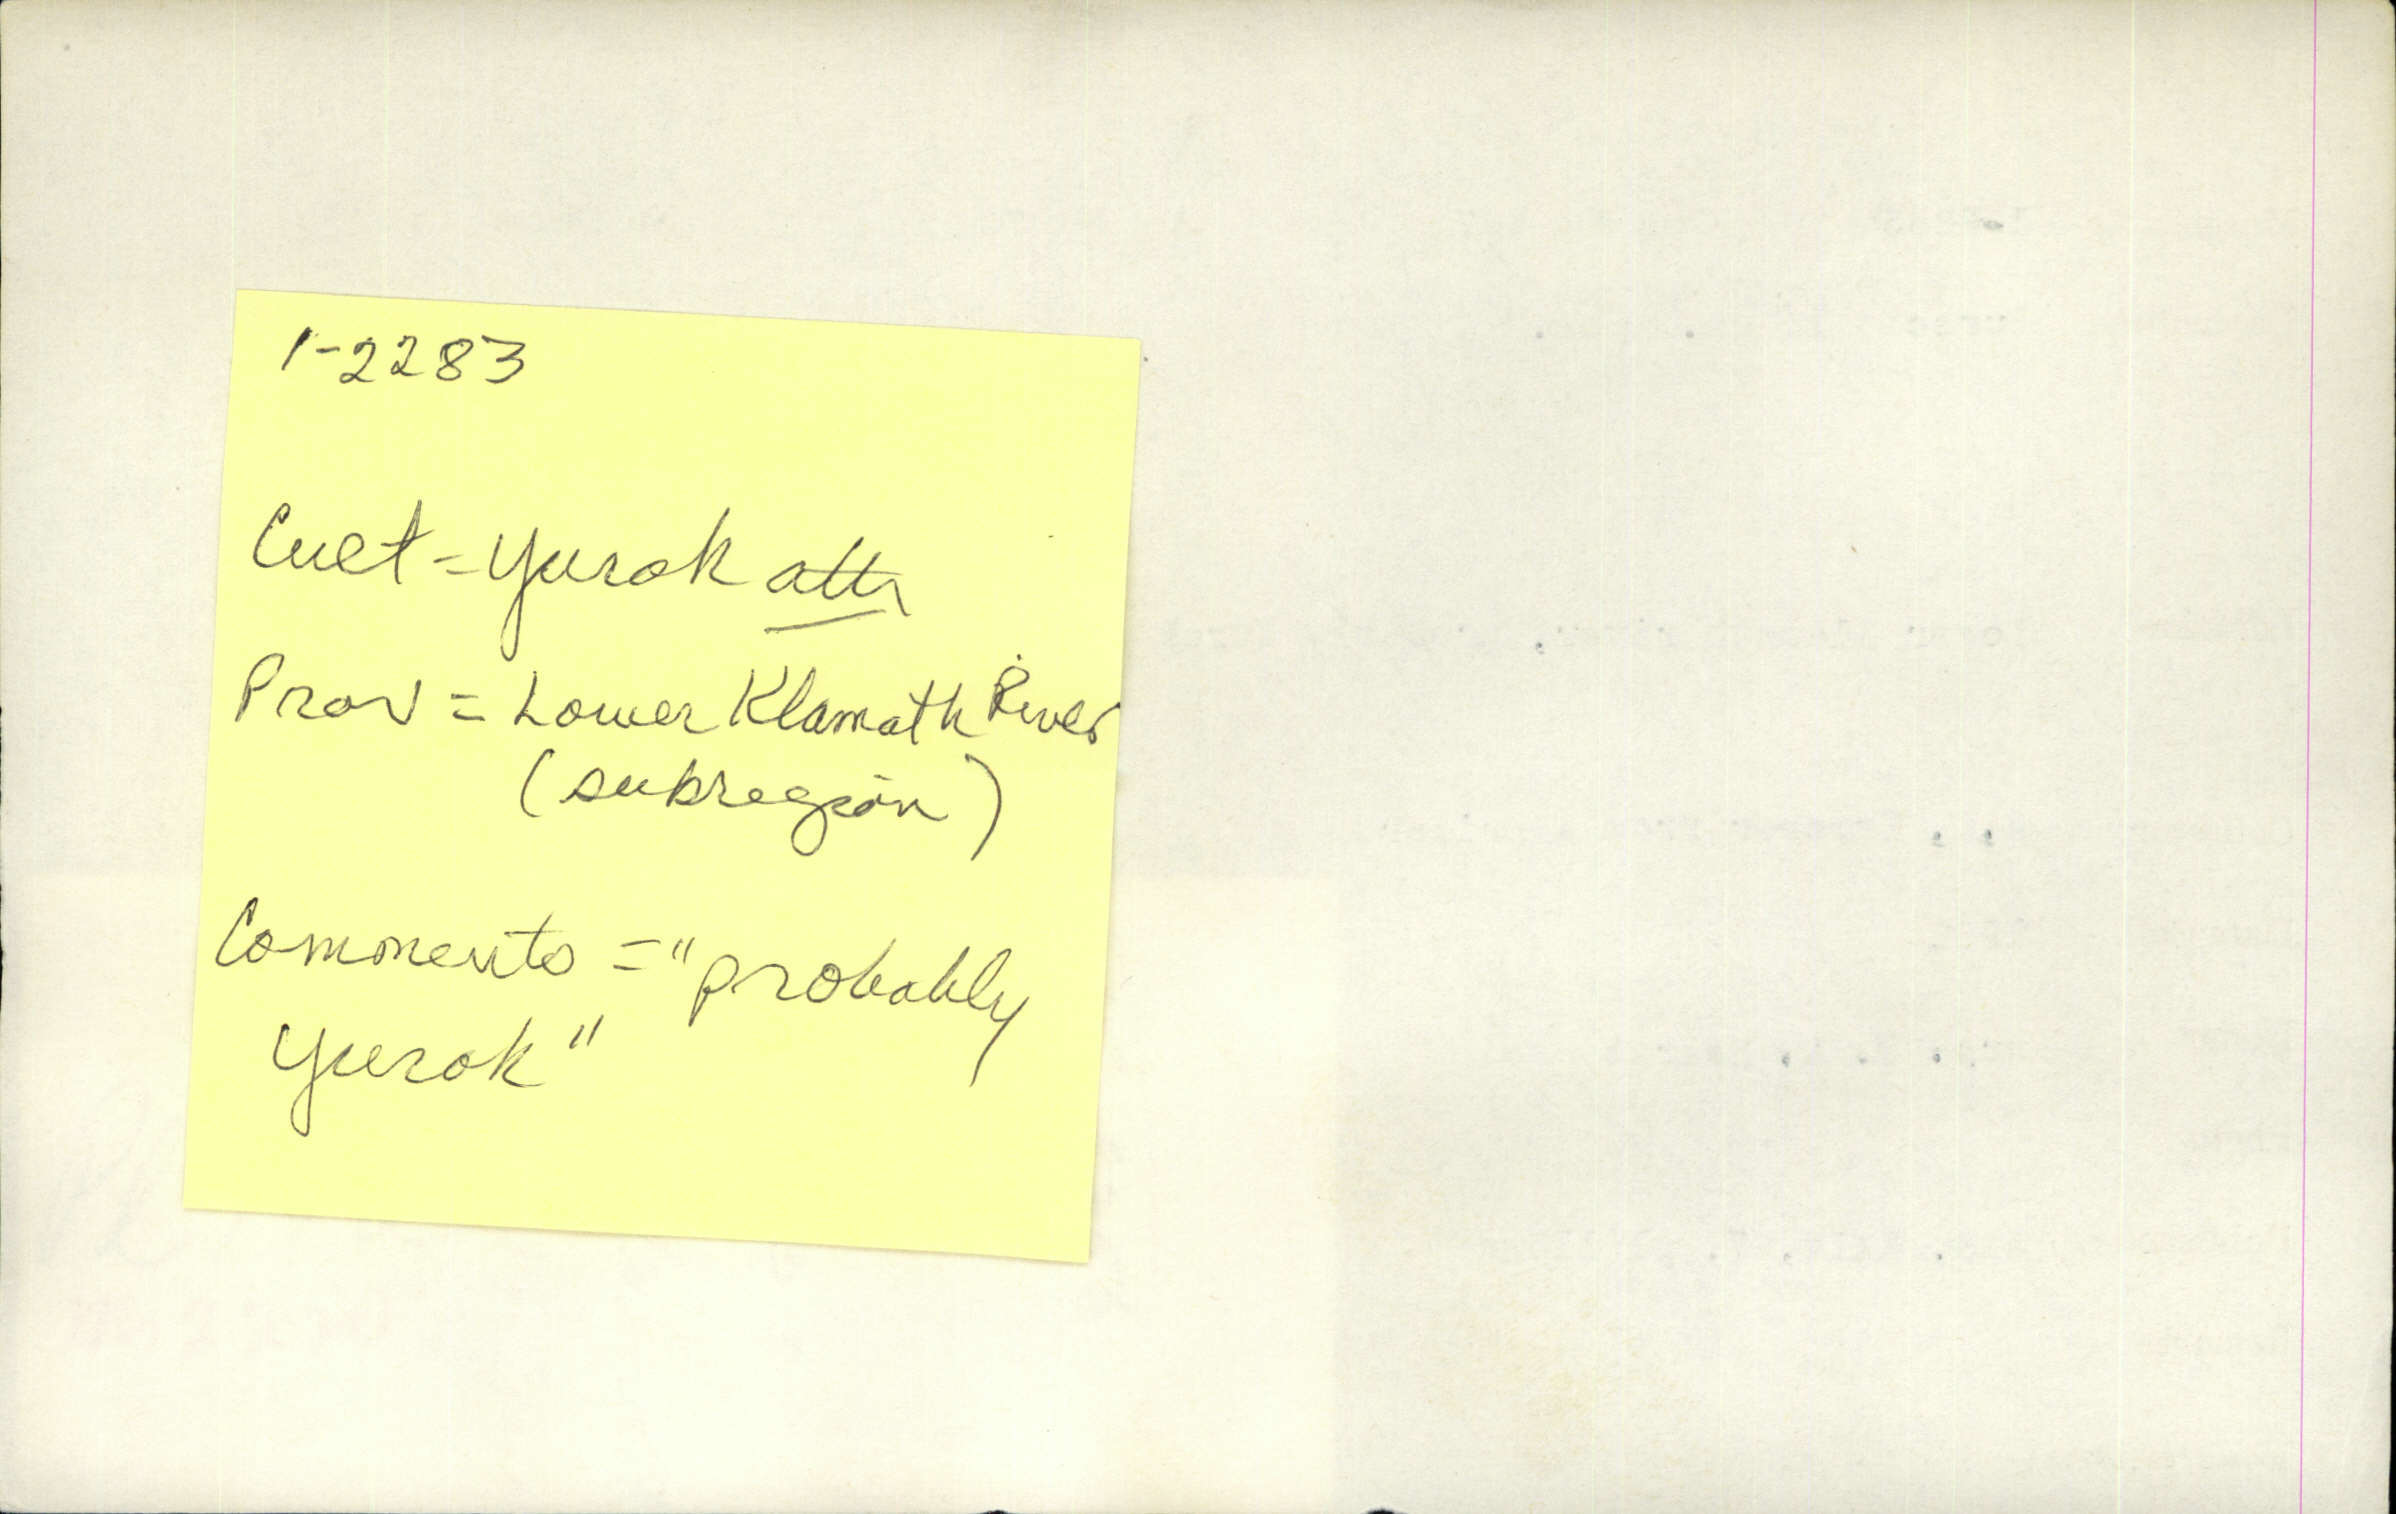 1-2283
Cult = Yurok attr
Prov = Lower Klamath River
(subregion)
Comments = "probably
Yurok"